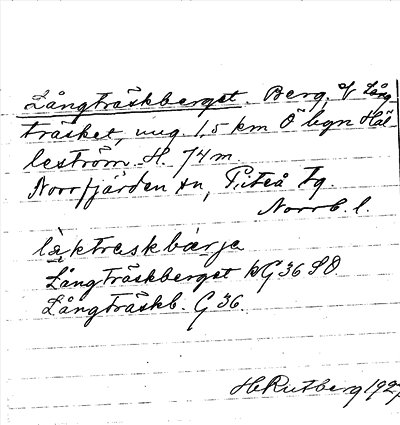 Långträskberget. Berg, v Lång
träsket, ung. 1,5 km Ö bgn Häl
leström. H. 74 m.
Norrfjärden sn, Piteå tg.
Norrb. l.
làktraskbærja
Långträskberget kG 36 SO
Långträskb. G 36.
H Rutberg 192